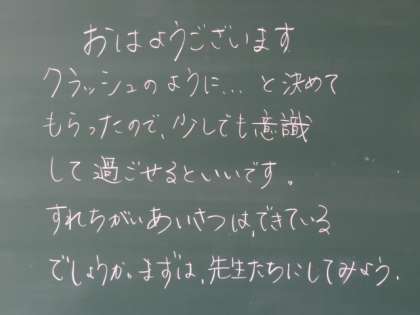 おはようございます
クラッシュのように… と決めて
もらったので、少しでも意識
して過ごせるといいです。
すれちがいあいさつは、できている
でしょうか。まずは、先生たちにしてみよう。